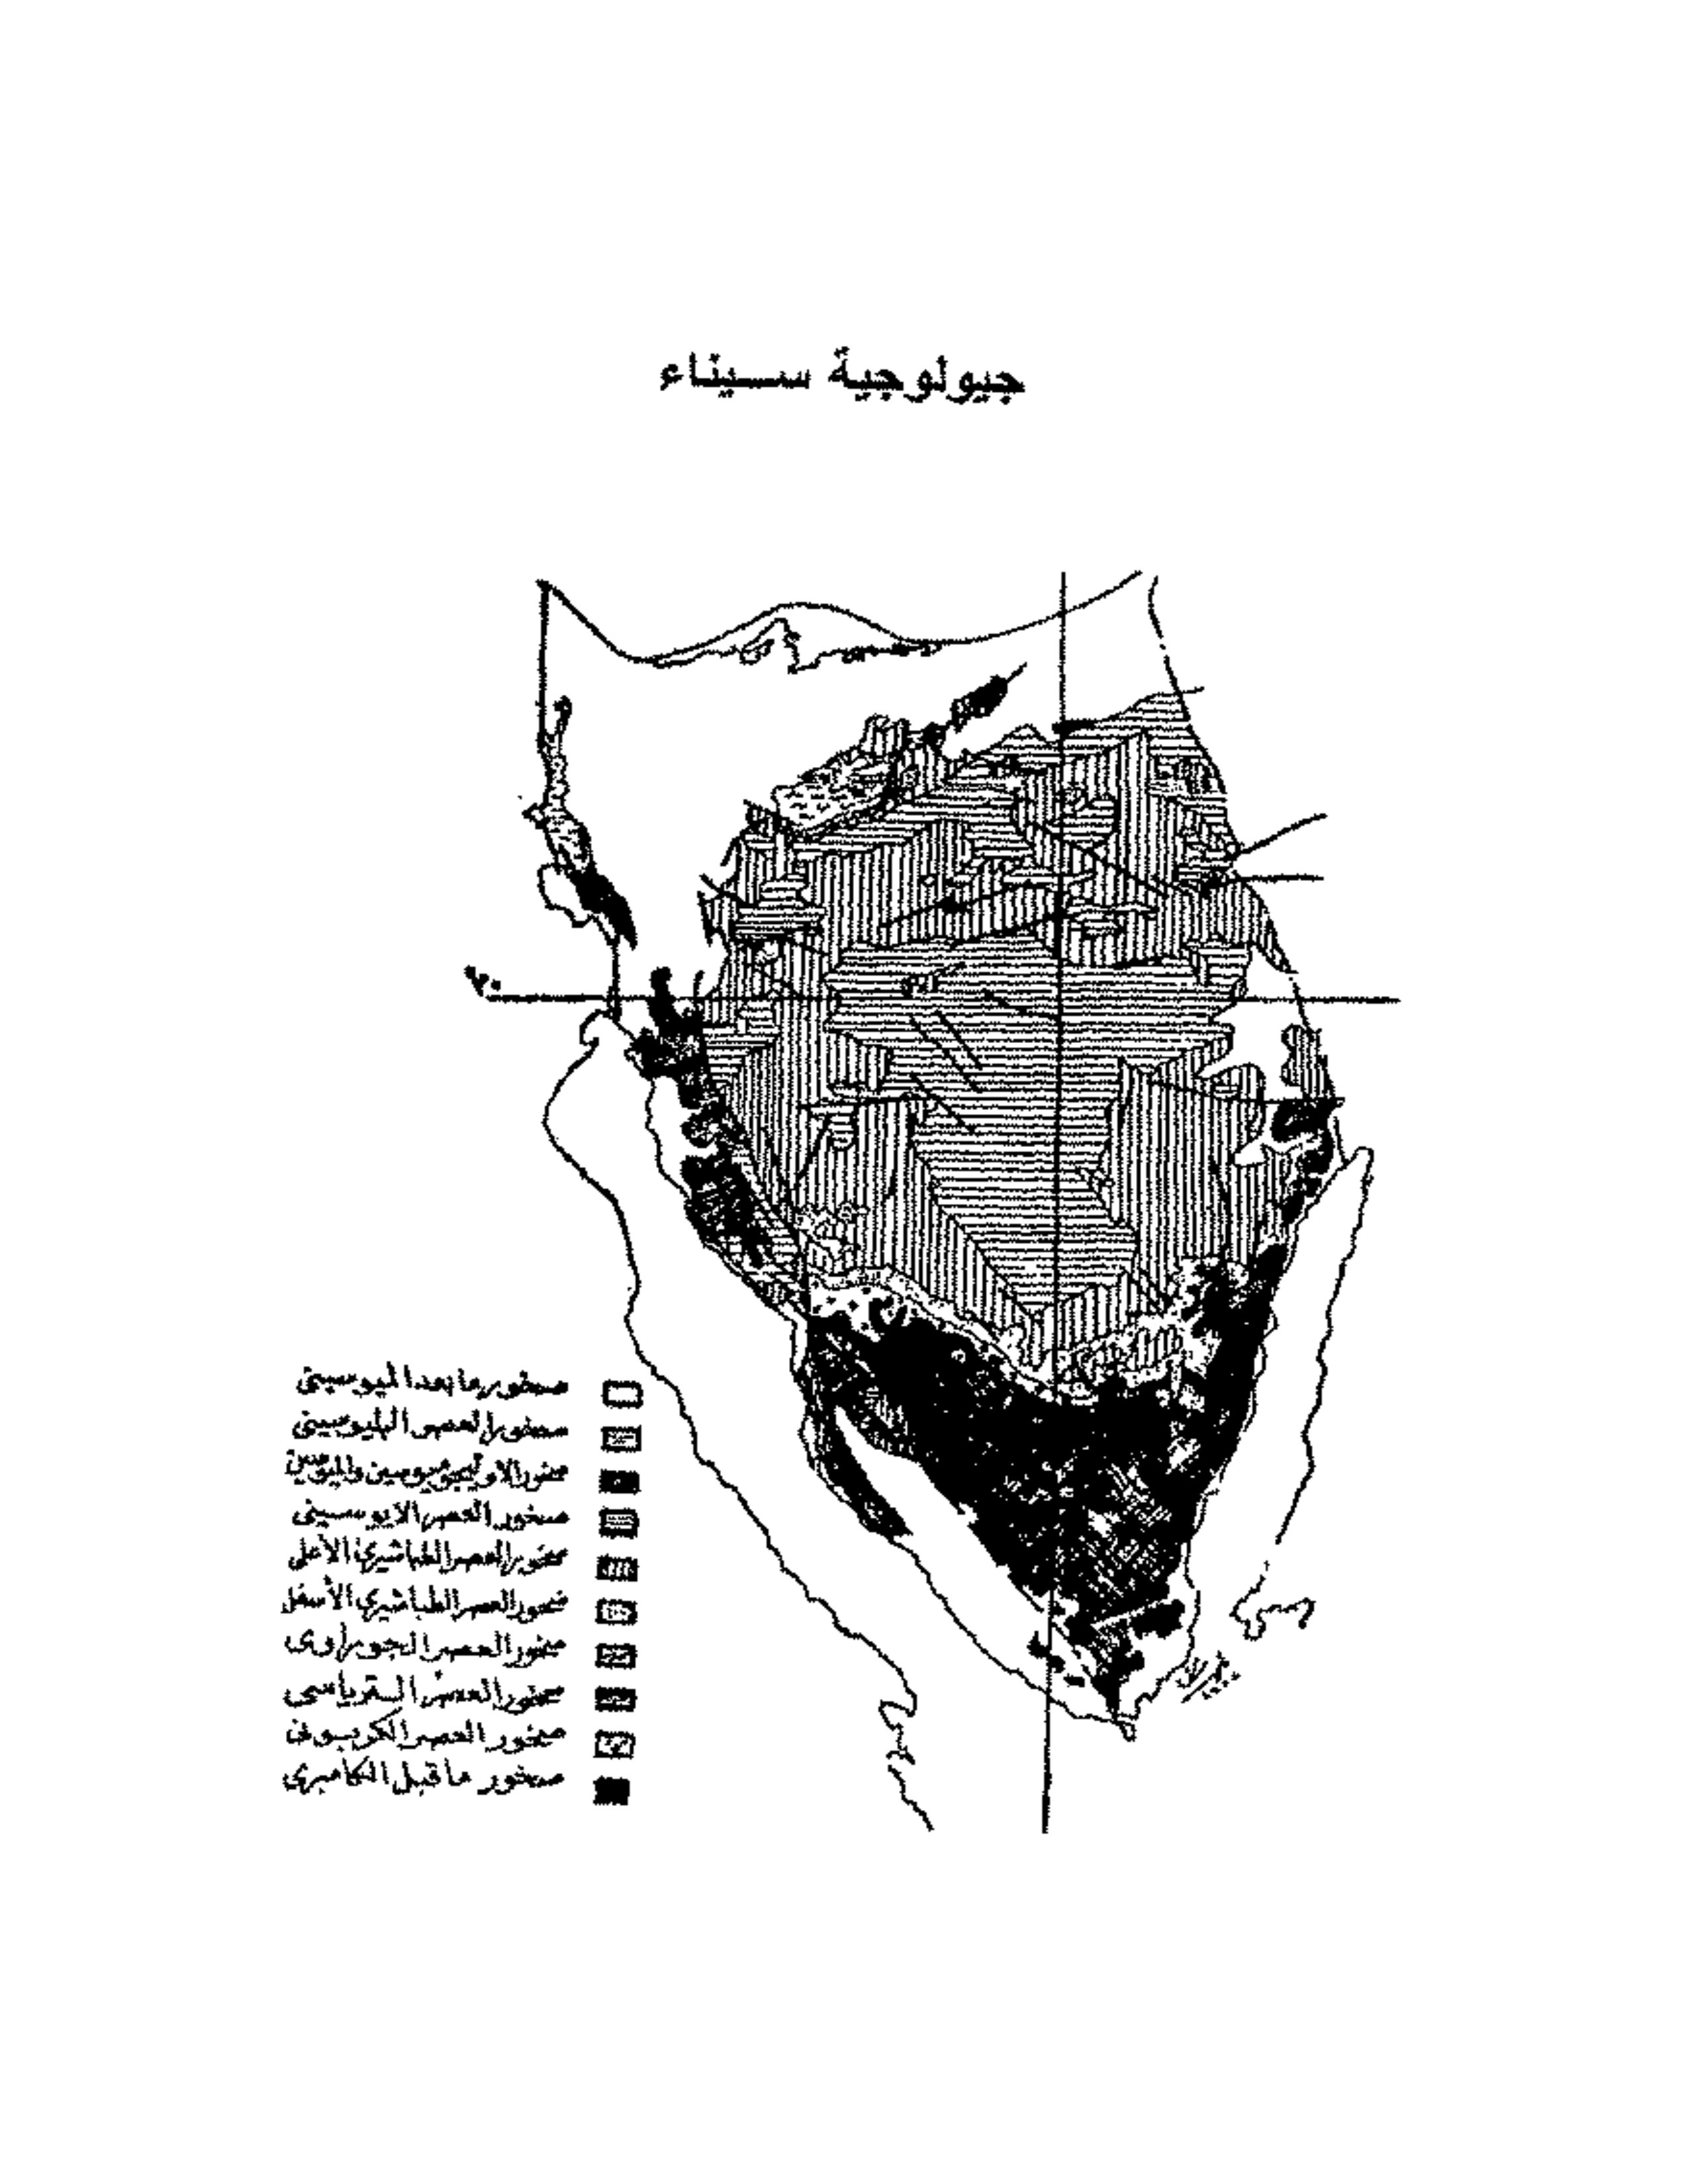 جيولوجية سيناء
٣٠
صخور ما بعد الميوسيني
صخور العصر البليوسيني
صخور الاوليجوسين والميوسين
صخور العصر الايوسيني
صخور العصر الطباشيرى الأعلى
صخور العصر الطباشيرى الأسفل
صخور العصر الجوراوى
صخور العصر الترياسى
صخور العصر الكربونى
صخور ما قبل الكامبرى